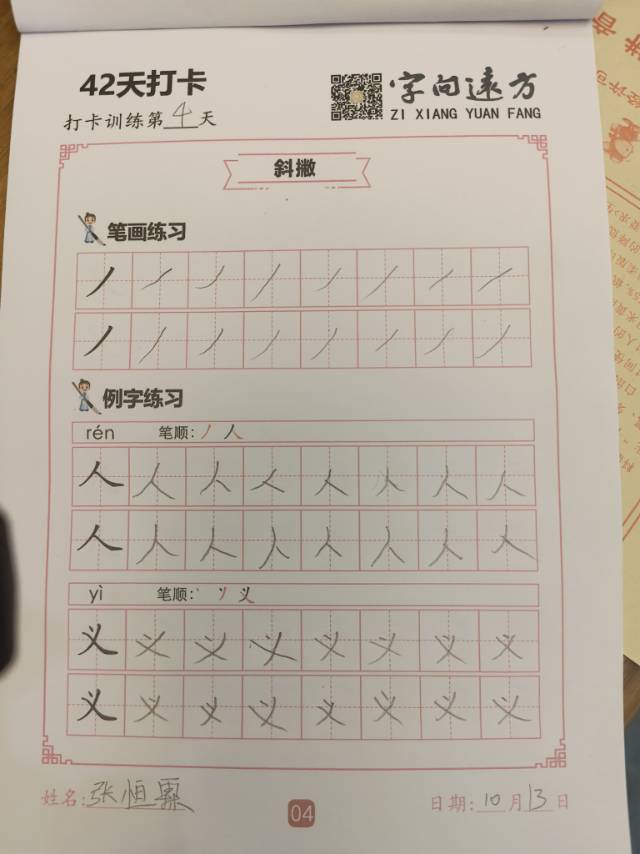 42天打卡
字向远方
打卡训练第4天
ZI XIANG YUAN FANG
斜撇
笔画练习
例字练习
rén 笔顺: 丿 人
人 人 人 人 人 人 人 人
人 人 人 人 人 人 人 人
yì 笔顺: 丶 丷 义
义 义 义 义 义 义 义 义
义 义 义 义 义 义 义 义
姓名: 张恒
04
日期: 10月13日